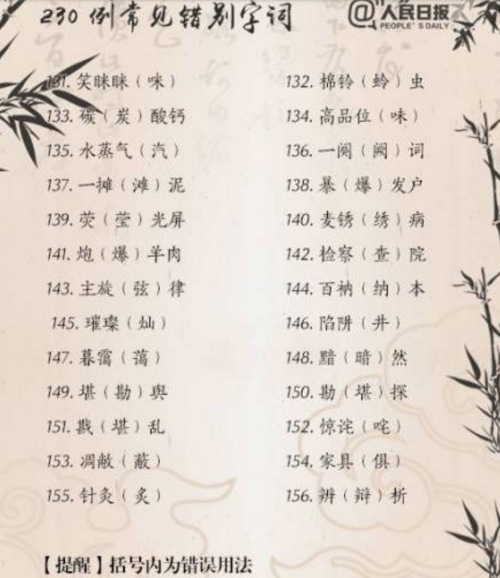 230例常见错别字词
@人民日报
PEOPLE'S DAILY
131. 笑眯眯（咪） 132. 棉铃（蛉）虫
133. 碳（炭）酸钙 134. 高品位（味）
135. 水蒸气（汽） 136. 一阕（阙）词
137. 一摊（滩）泥 138. 暴（爆）发户
139. 荧（莹）光屏 140. 麦锈（绣）病
141. 炮（爆）羊肉 142. 检察（查）院
143. 主旋（弦）律 144. 百衲（纳）本
145. 璀璨（灿） 146. 陷阱（井）
147. 暮霭（蔼） 148. 黯（暗）然
149. 堪（勘）舆 150. 勘（堪）探
151. 戡（堪）乱 152. 惊诧（咤）
153. 凋敝（蔽） 154. 家具（俱）
155. 针灸（炙） 156. 辨（辩）析
【提醒】括号内为错误用法